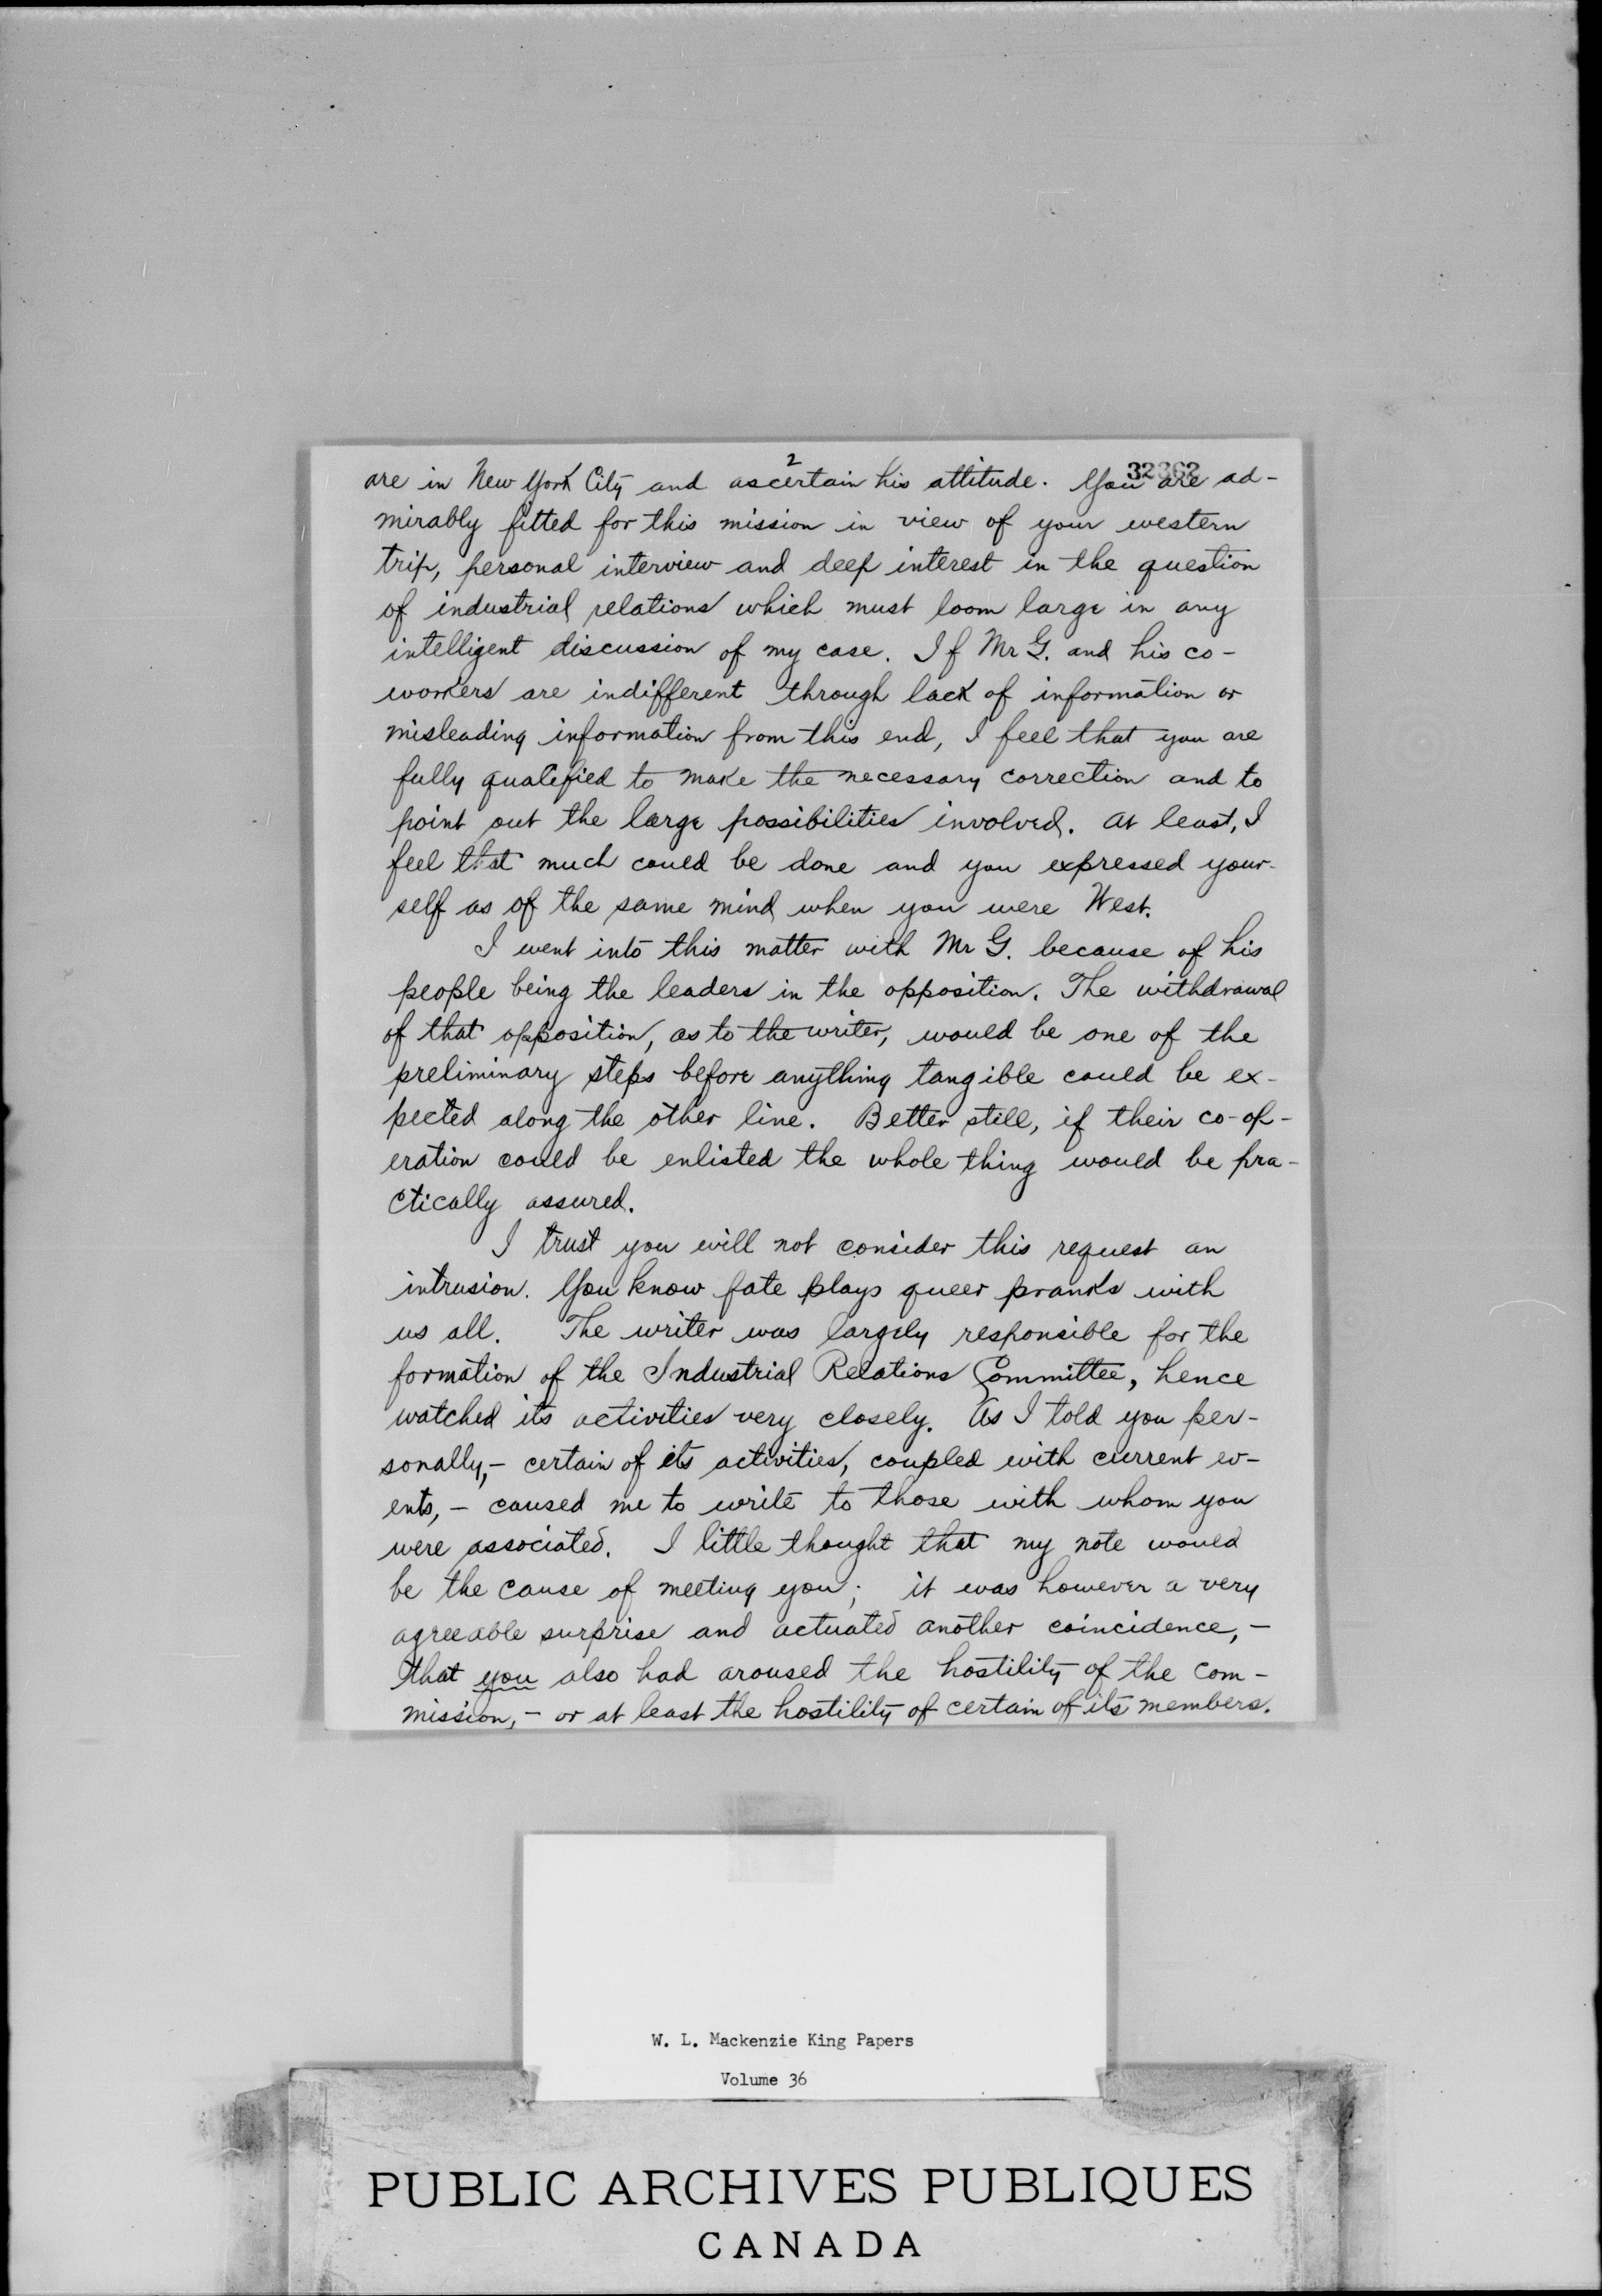 2
32362
are in New York City and ascertain his attitude. You are ad-
mirably fitted for this mission in view of your western
trip, personal interview and deep interest in the question
of industrial relations which must loom large in any
intelligent discussion of my case. If Mr G. and his co-
workers are indifferent through lack of information or
misleading information from this end, I feel that you are
fully qualified to make the necessary correction and to
point out the large possibilities involved. At least, I
feel that much could be done and you expressed your-
self as of the same mind when you were West.
I went into this matter with Mr G. because of his
people being the leaders in the opposition. The withdrawal
of that opposition, as to the writer, would be one of the
preliminary steps before anything tangible could be ex-
pected along the other line. Better still, if their co-op-
eration could be enlisted the whole thing would be pra-
ctically assured.
I trust you will not consider this request an
intrusion. You know fate plays queer pranks with
us all. The writer was largely responsible for the
formation of the Industrial Relations Committee, hence
watched its activities very closely. As I told you per-
sonally,- certain of its activities, coupled with current ev-
ents, - caused me to write to those with whom you
were associated. I little thought that my note would
be the cause of meeting you; it was however a very
agreeable surprise and actuated another coincidence, -
that you also had aroused the hostility of the com-
mission, - or at least the hostility of certain of its members.
W. L. Mackenzie King Papers
Volume 36
PUBLIC ARCHIVES PUBLIQUES
CANADA